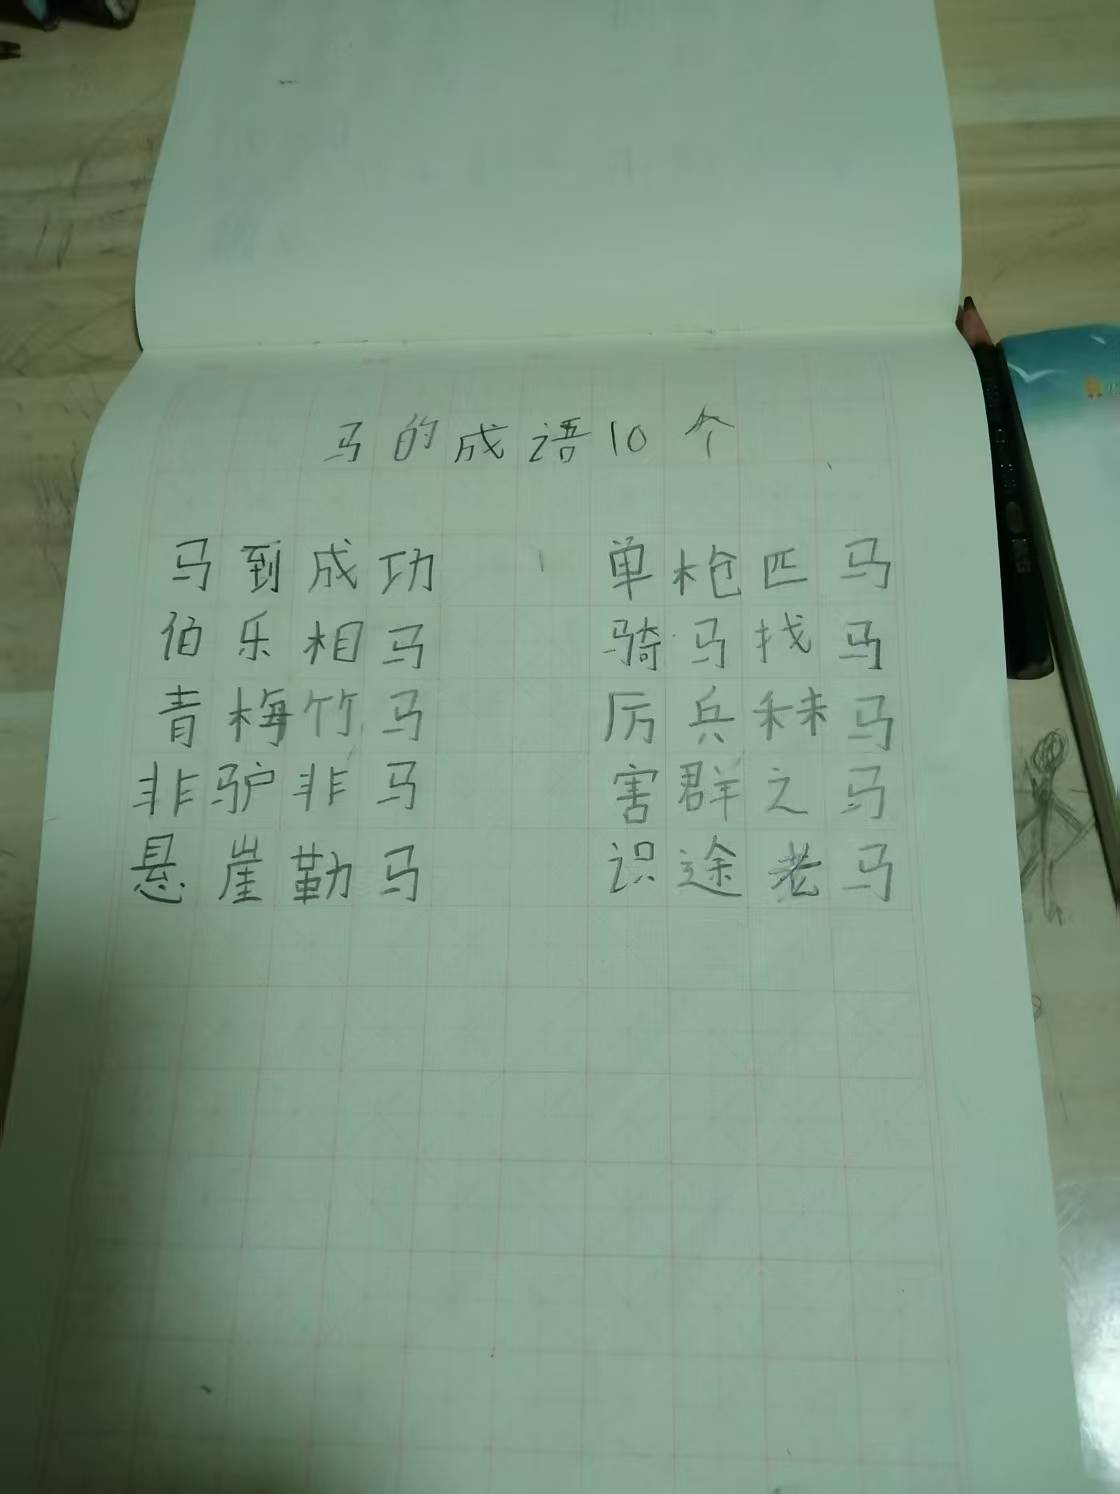 马的成语10个
马到成功 单枪匹马
伯乐相马 骑马找马
青梅竹马 厉兵秣马
非驴非马 害群之马
悬崖勒马 识途老马